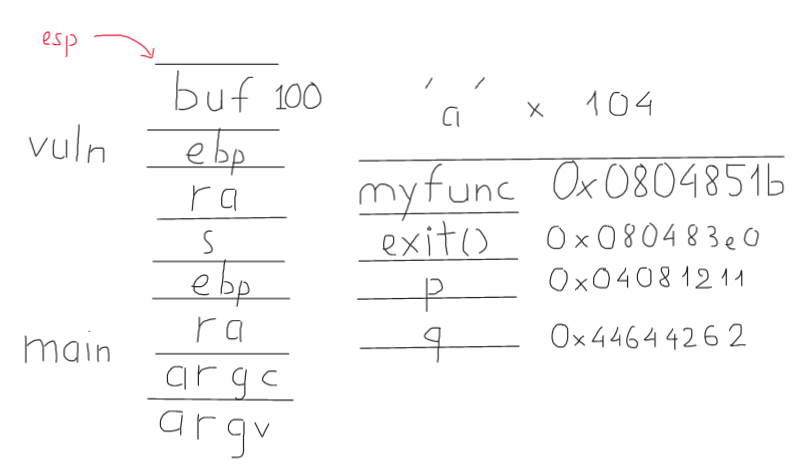 esp
buf 100
vuln
ebp
ra
s
ebp
main
ra
argc
argv
'a' x 104
myfunc 0x0804851b
exit() 0x080483e0
p 0x04081211
q 0x44644262